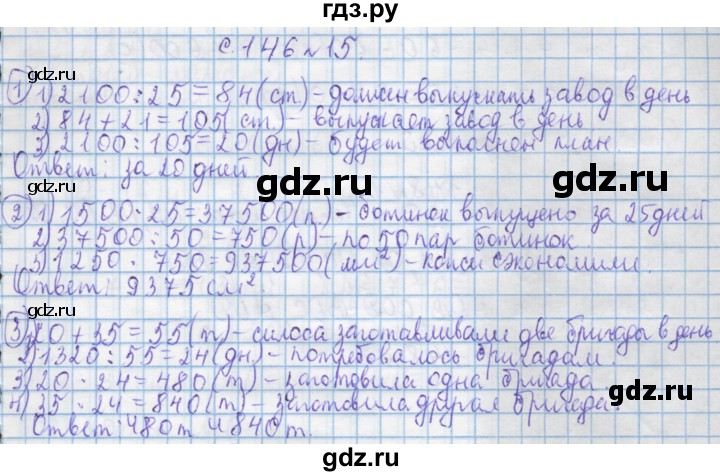 гдз.ру
с. 146 № 15.
gdz.ru
1) 1) 2100 : 25 = 84 (ст) - должен выпускать завод в день
2) 84 + 21 = 105 (ст) - выпускает завод в день
3) 2100 : 105 = 20 (дн) - будет выполнен план.
Ответ: за 20 дней
gdz.ru
gdz.ru
2) 1) 1500 · 25 = 37500 (п) - ботинок выпущено за 25 дней
2) 37500 : 50 = 750 (р) - по 50 пар ботинок
3) 1250 · 750 = 937500 (мм²) - кожи сэкономили.
Ответ: 9375 см².
gdz.ru
3) 1) 20 + 35 = 55 (т) - силоса заготавливали две бригады в день
2) 1320 : 55 = 24 (дн) - потребовалось бригадам.
3) 20 · 24 = 480 (т) - заготовила одна бригада
4) 35 · 24 = 840 (т) - заготовила другая бригада.
Ответ: 480 т и 840 т.
gdz.ru
gdz.ru
gdz.ru